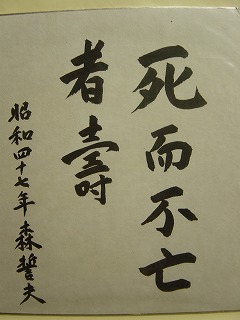 死而不亡
者壽
昭和四十七年森誓夫